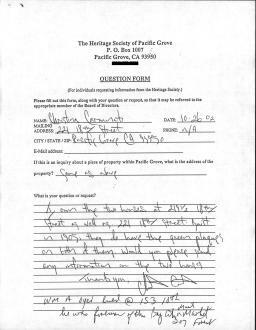 The Heritage Society of Pacific Grove
P. O. Box 1007
Pacific Grove, CA 93950
QUESTION FORM
(For individuals requesting information from the Heritage Society.)
Please fill out this form, along with your question or request, so that it may be referred to the
appropriate member of the Board of Directors.
NAME: DATE 10-26-02
MAILING
ADDRESS: 221 18th Street PHONE: n/a
CITY / STATE / ZIP: Pacific Grove CA 93950
E-Mail address:
If this is an inquiry about a place of property within Pacific Grove, what is the address of the
property? Same as above
What is your question or request?
I own the two houses at 18th
Street as well as 221 18th Street
in 1905, they do have the green plaques
on both of them. Would you please send
any information on the two houses
Thank you,
W M A @ 153 18th